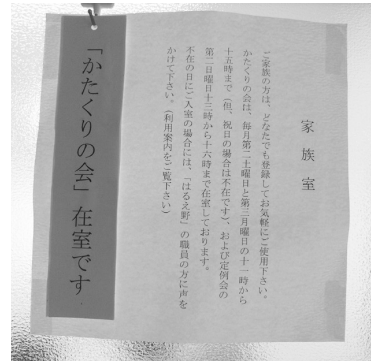 家族室
ご家族の方は、どなたでも登録してお気軽にご使用下さい。
かたくりの会は、毎月第二土曜日と第三月曜日の十一時から
十五時まで（但、祝日の場合は不在です）、および定例会の
第二日曜日十三時から十六時まで在室しております。
不在の日にご入室の場合には、「はるえ野」の職員の方に声を
かけて下さい。（利用案内をご覧下さい）
「かたくりの会」在室です